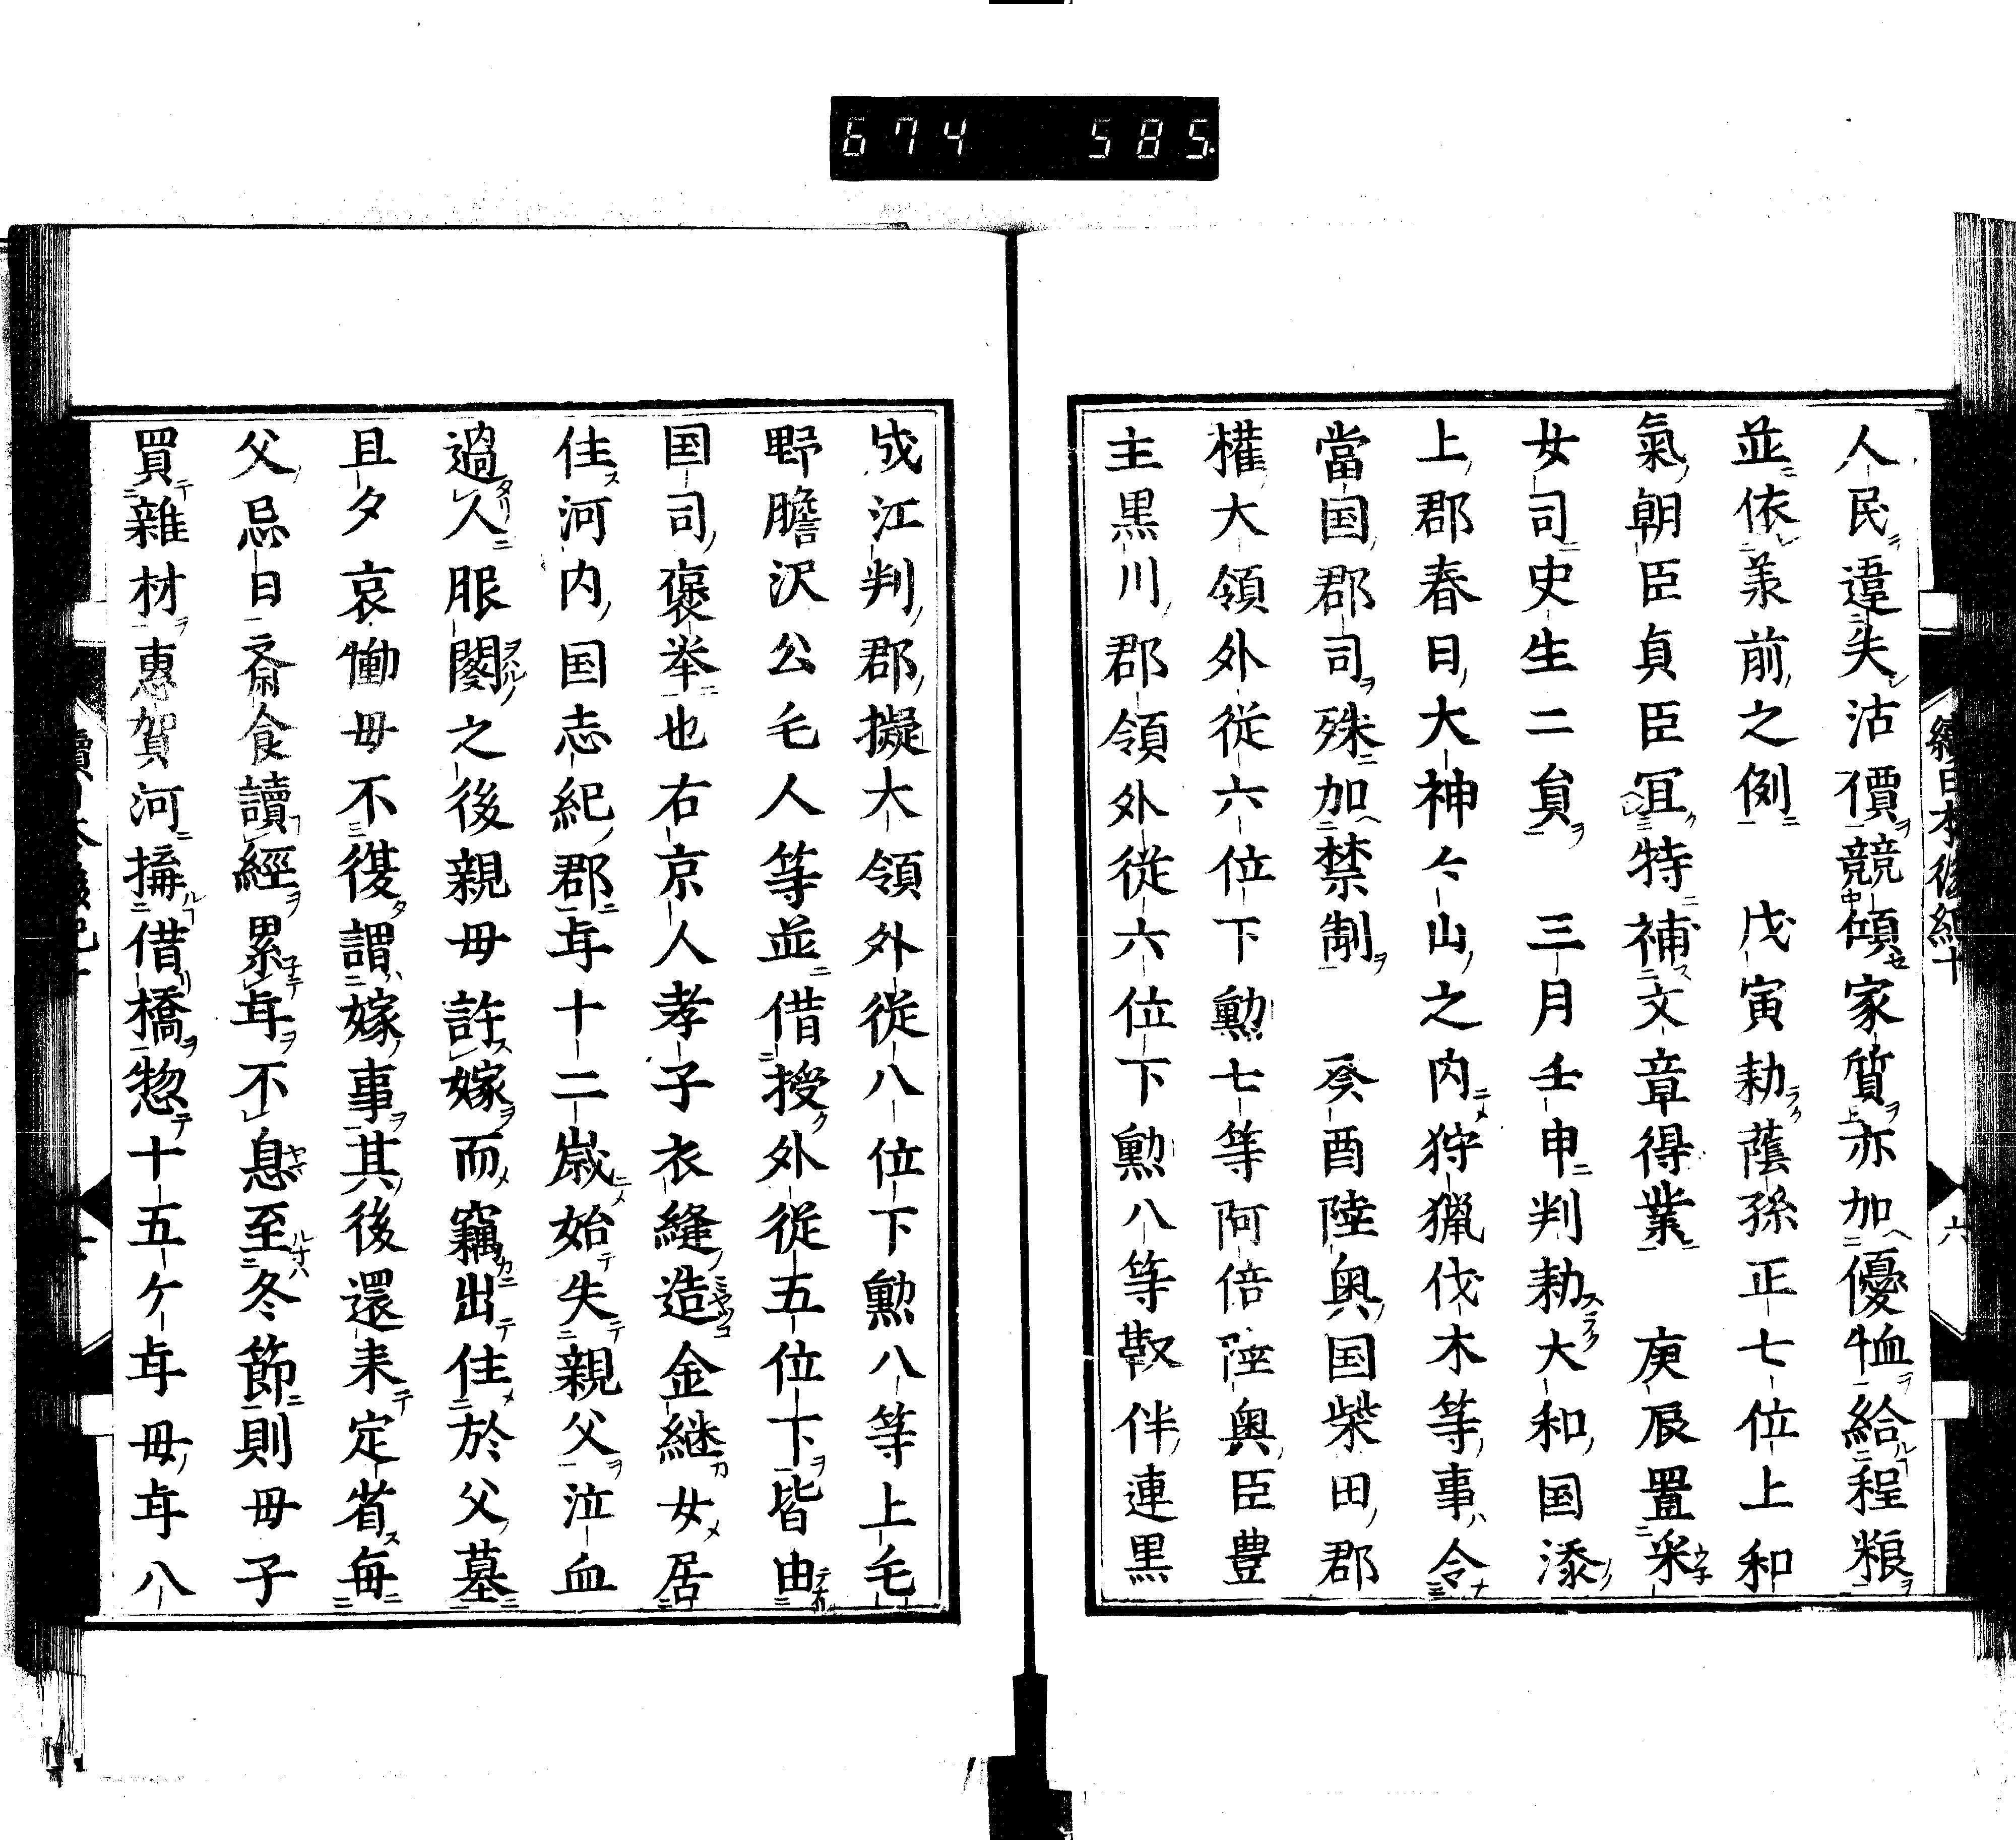 674 585
續日本後紀十
六
人民違失沽價競傾家質亦加優恤給程粮
並依承前之例 戊寅勅蔭孫正七位上和
氣朝臣貞臣冝特補文章得業 庚辰置采
女司史生二負 三月壬申判勅大和国添
上郡春日大神仐山之内狩猟伐木等事令
當国郡司殊加禁制 癸酉陸奥国柴田郡
權大領外従六位下勲七等阿倍陸奥臣豊
主黒川郡領外従六位下勲八等靫伴連黒
成江判郡擬大領外従八位下勲八等上毛
野膽沢公毛人等並借授外従五位下皆由
国司褒挙也右京人孝子衣縫造金継女居
住河内国志紀郡年十二歳始失親父泣血
過人服闋之後親母許嫁而竊出住於父墓
旦夕哀慟母不復謂嫁事其後還来定省毎
父忌日斎食讀經累年不息至冬節則母子
買雜材惠賀河搆借橋惣十五ケ年母年八